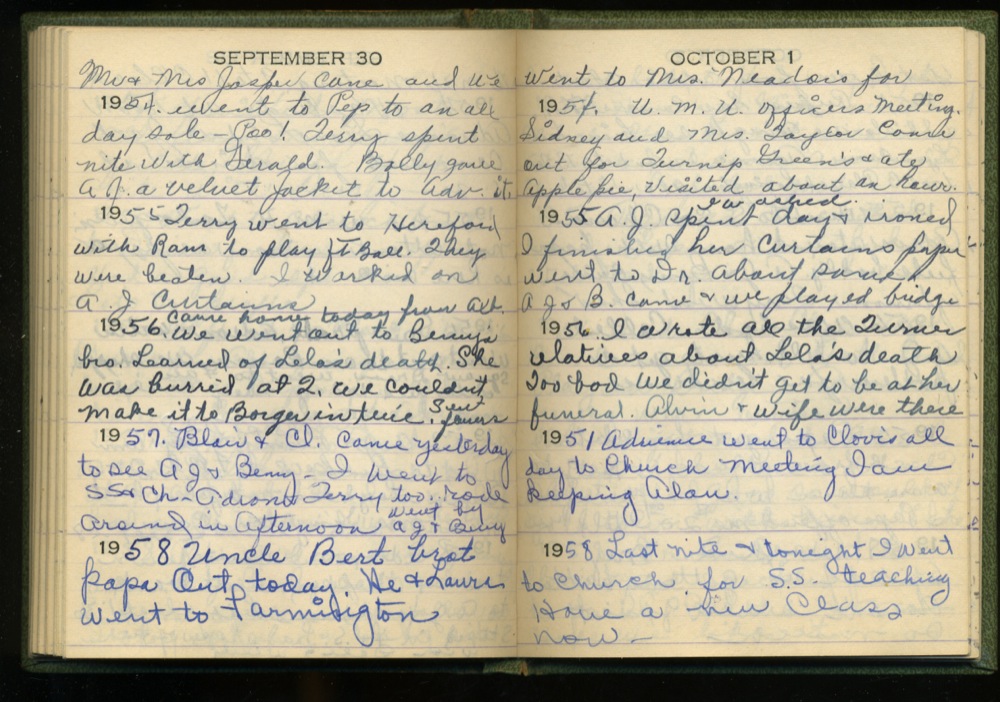 SEPTEMBER 30
Mr & Mrs Jasper Cane and we
1954. went to Pep to an all
day sale - Poo! Terry spent
nite with Gerald. Bolly gave
A.J. a velvet jacket to adv. it.
1955 Terry went to Hereford
with Rams to play ft Ball. They
were beaten. I worked on
A.J Curtains
came home today from Alb.
1956. We went out to Benny's
bro. Learned of Lela's death. She
was burried at 2. we couldn't
make it to Borger in time. Sent flowers
1957. Blair & Cl. Came yesterday
to see A J & Benny - I went to
SS & Ch - Terry too. rode
around in afternoon went by A J & Benny
1958 Uncle Bert brot
papa Out today. He & Laura
went to Farmington
OCTOBER 1
Went to Mrs. Meador's for
1954. U. M. U. officers Meeting.
Sidney and Mrs. Taylor Came
out for Turnip Green's & ate
apple pie, visited about an hour.
1955 A.J. spent day & washed. ironed
I finished her Curtains papa
went to Dr. About same
A J & B. came & we played bridge
1956. I wrote all the Turner
relatives about Lela's death
Too bad we didn't get to be at her
funeral. Alvin & wife were there
1957 went to Clovis all
day to Church Meeting I am
keeping Alan.
1958 Last nite & tonight I went
to church for S.S. teaching
Have a new Class
now -